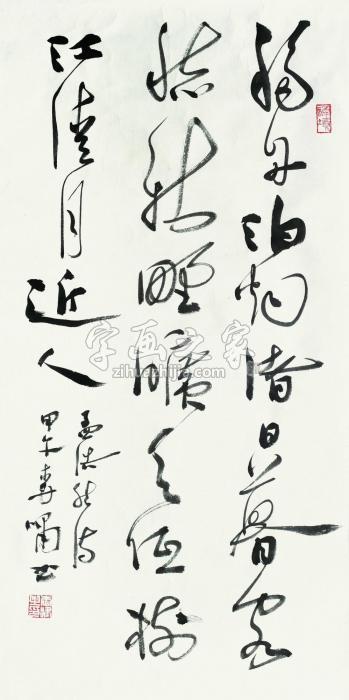 移舟泊烟渚日暮客
愁新野曠天低树
江清月近人
孟浩然诗
甲午 嘯书
字画之家
zihuazhijia.com